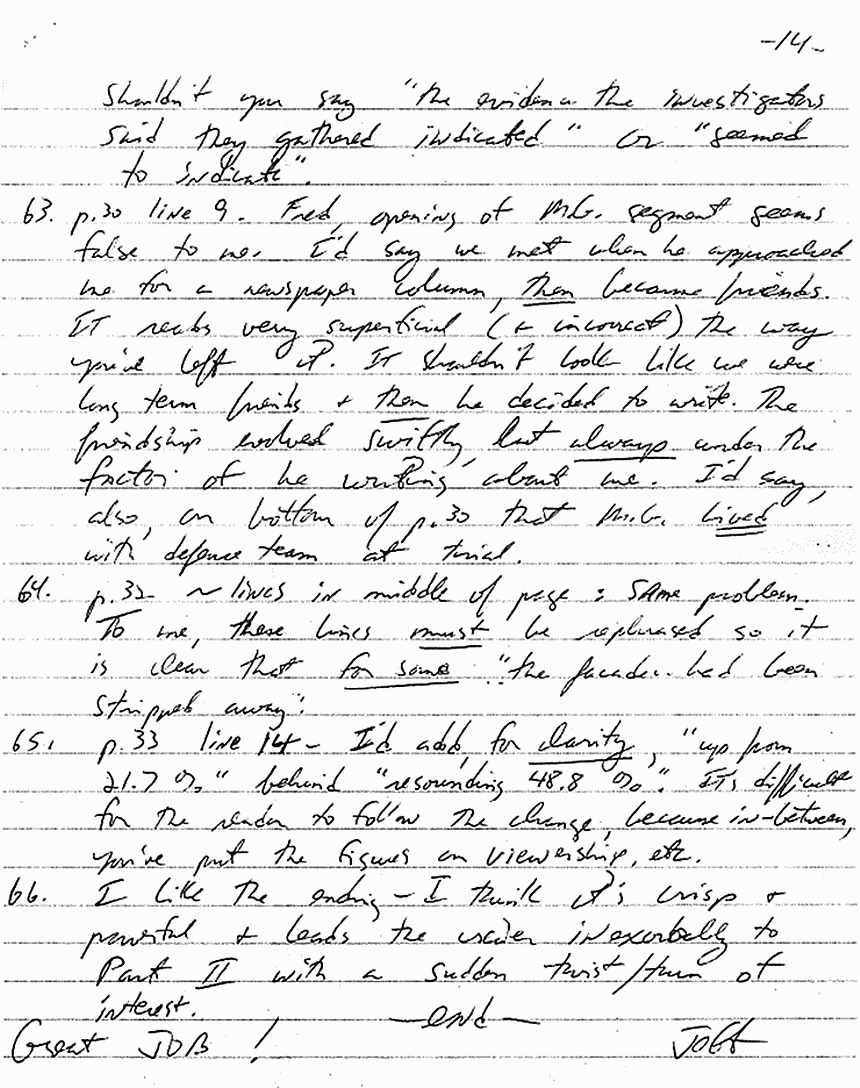 -14-
Shouldn't you say "the evidence the investigators
said they gathered indicated" or "seemed
to indicate".
63. p.30 line 9. Fred, opening of M.G. segment seems
false to me. I'd say we met when he approached
me for a newspaper column, then became friends.
IT reads very superficial (+ incorrect) the way
you've left it. It shouldn't look like we were
long term friends + then he decided to write. The
friendship evolved swiftly, but always under the
factor of he writing about me. I'd say,
also, on bottom of p.30 that M.G. lived
with defense team at trial.
64. p.32 ~ lines in middle of page: SAME problem.
To me, these lines must be rephrased so it
is clear that for some "the facade.. had been
stripped away".
65. p.33 line 14 - I'd add, for clarity, "up from
21.7 %" behind "resounding 48.8 %". IT's difficult
for the reader to follow the change, because in-between,
you've put the figures on viewership, etc.
66. I like the ending - I think it's crisp +
powerful + leads the reader inexorbally to
Part II with a sudden twist/turn of
interest.
-end-
Great JOB! Jeff